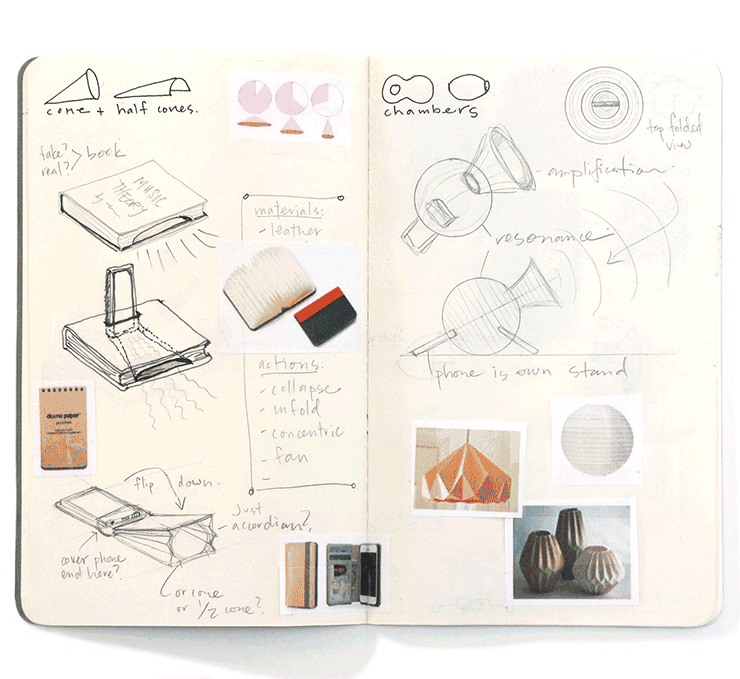 cone + half cones.
fake?
real? > book
MUSIC
THEORY
materials:
- leather
actions:
- collapse
- unfold
- concentric
- fan
-
flip down.
- Just
accordian?
cover phone
end here?
or cone
or 1/2 cone?
chambers
top folded
view
- amplification
resonance
phone is own stand